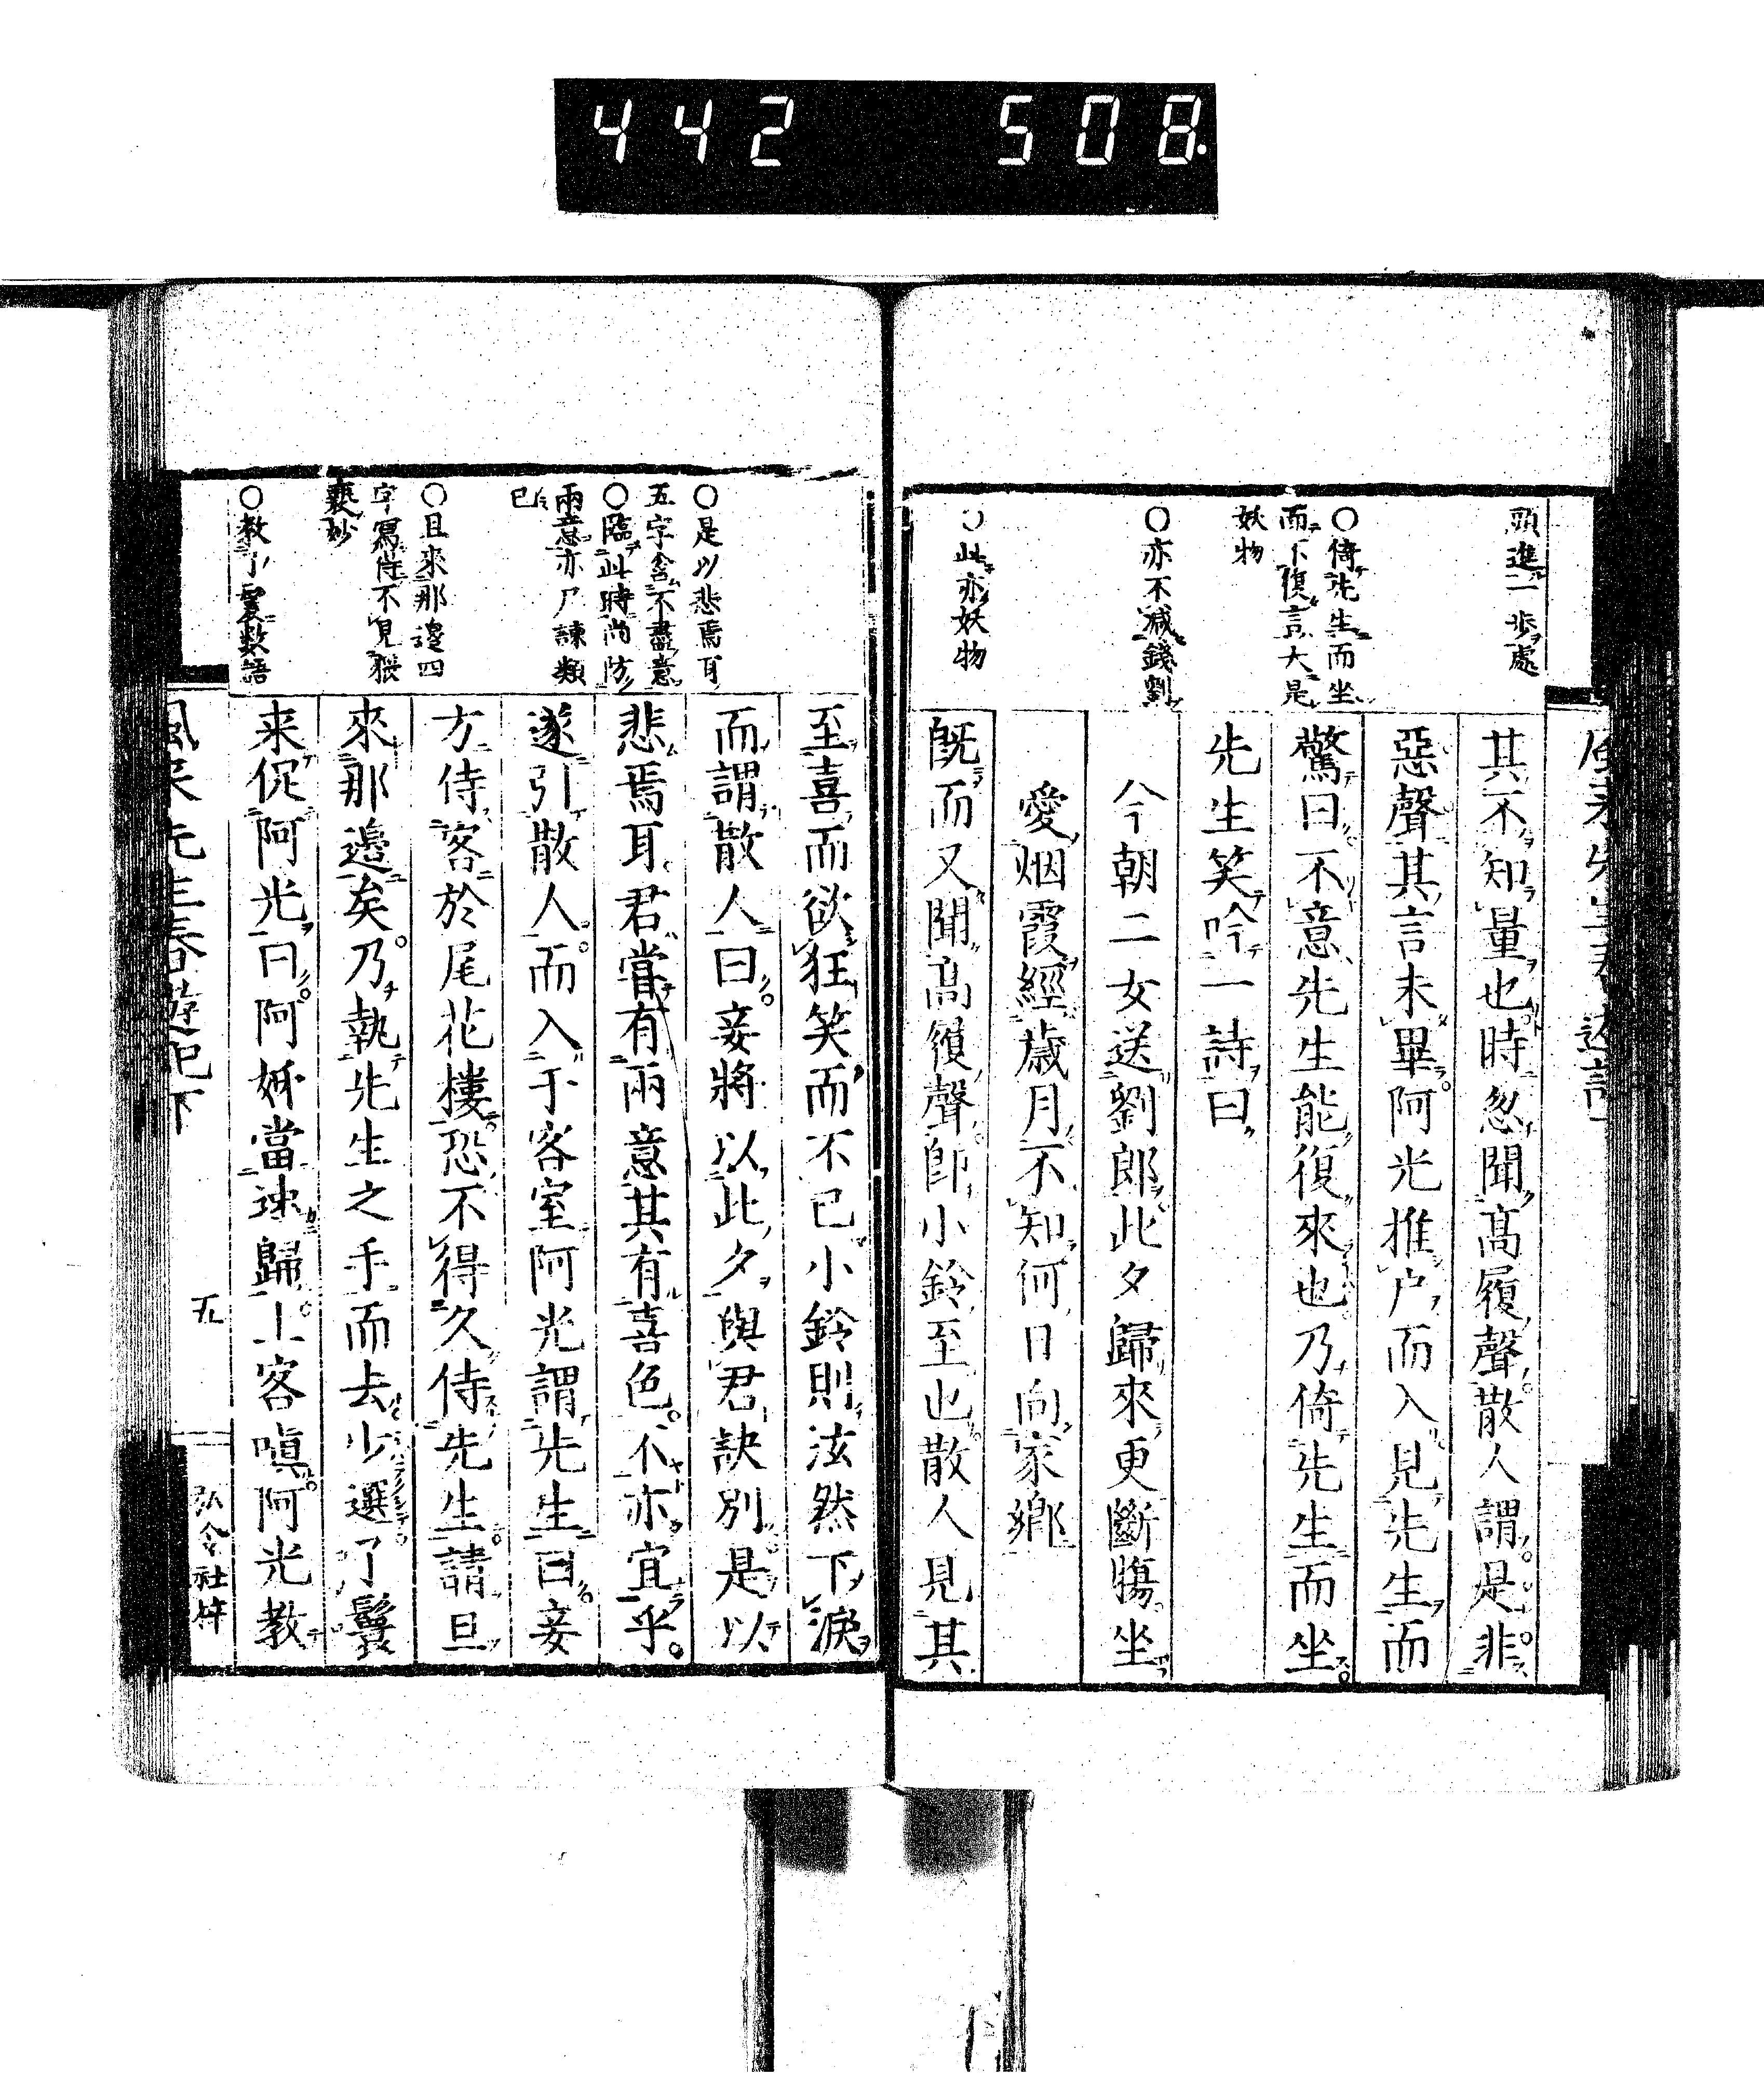 442 508.
頭進一歩處
○倚先生而坐
而不復言大是
妖物
○亦不減錢劉
○此亦妖物
其不知量也時忽聞高履聲散人謂是非
惡聲其言未畢阿光推戸而入見先生而
驚曰不意先生能復來也乃倚先生而坐
先生笑吟一詩曰
今朝二女送劉郎此夕歸來更斷膓坐
愛烟霞經歳月不知何日向家鄉
既而又聞高履聲即小鈴至也散人見其
○是以悲焉耳
五字含不盡意
○臨此時尚防
兩意亦尸諫類
已
○且來那邊四
字寫侍不見猥
褻妙
○教了鬟数語
至喜而欲狂笑而不已小鈴則泫然下淚
而謂散人曰妾將以此夕與君訣別是以
悲焉耳君嘗有兩意其有喜色不亦宜乎
遂引散人而入于客室阿光謂先生曰妾
方侍客於尾花樓恐不得久侍先生請且
來那邊矣乃執先生之手而去少選了鬟
来促阿光曰阿姊當速歸上客嗔阿光教
風來先生春遊記下
九